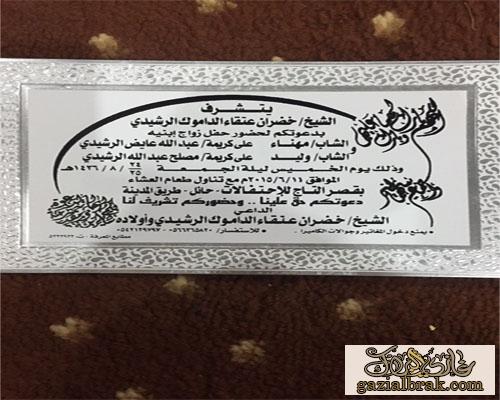 يتشرف
الشيخ/ خضران عنقاء الداموك الرشيدي
بدعوتكم لحضور حفل زواج إبنيه
الشاب/ مهناء على كريمة/ عبدالله عايض الرشيدي
و
الشاب/ وليد على كريمة/ مصلح عبدالله الرشيدي
وذلك يوم الخميس ليلة الجمعة ٢٤/٢٥ / ٨ / ١٤٣٦هـ
الموافق ٢٠١٥/٦/١١م مع تناول طعام العشاء
بقصر التاج للإحتفالات - حائل - طريق المدينة
دعوتكم حق علينا .. وحضوركم تشريف لنا
الداعي
الشيخ/ خضران عنقاء الداموك الرشيدي وأولاده
• يمنع دخول المفاتير وجوالات الكاميرا . • للاستفسار/ ٠٥٦٦٢٦٥٨٢٠ - ٠٥٤٢١٢٩٧٩٧
مطابع المعرفة - ت:
غازي البراك
gazialbrak.com